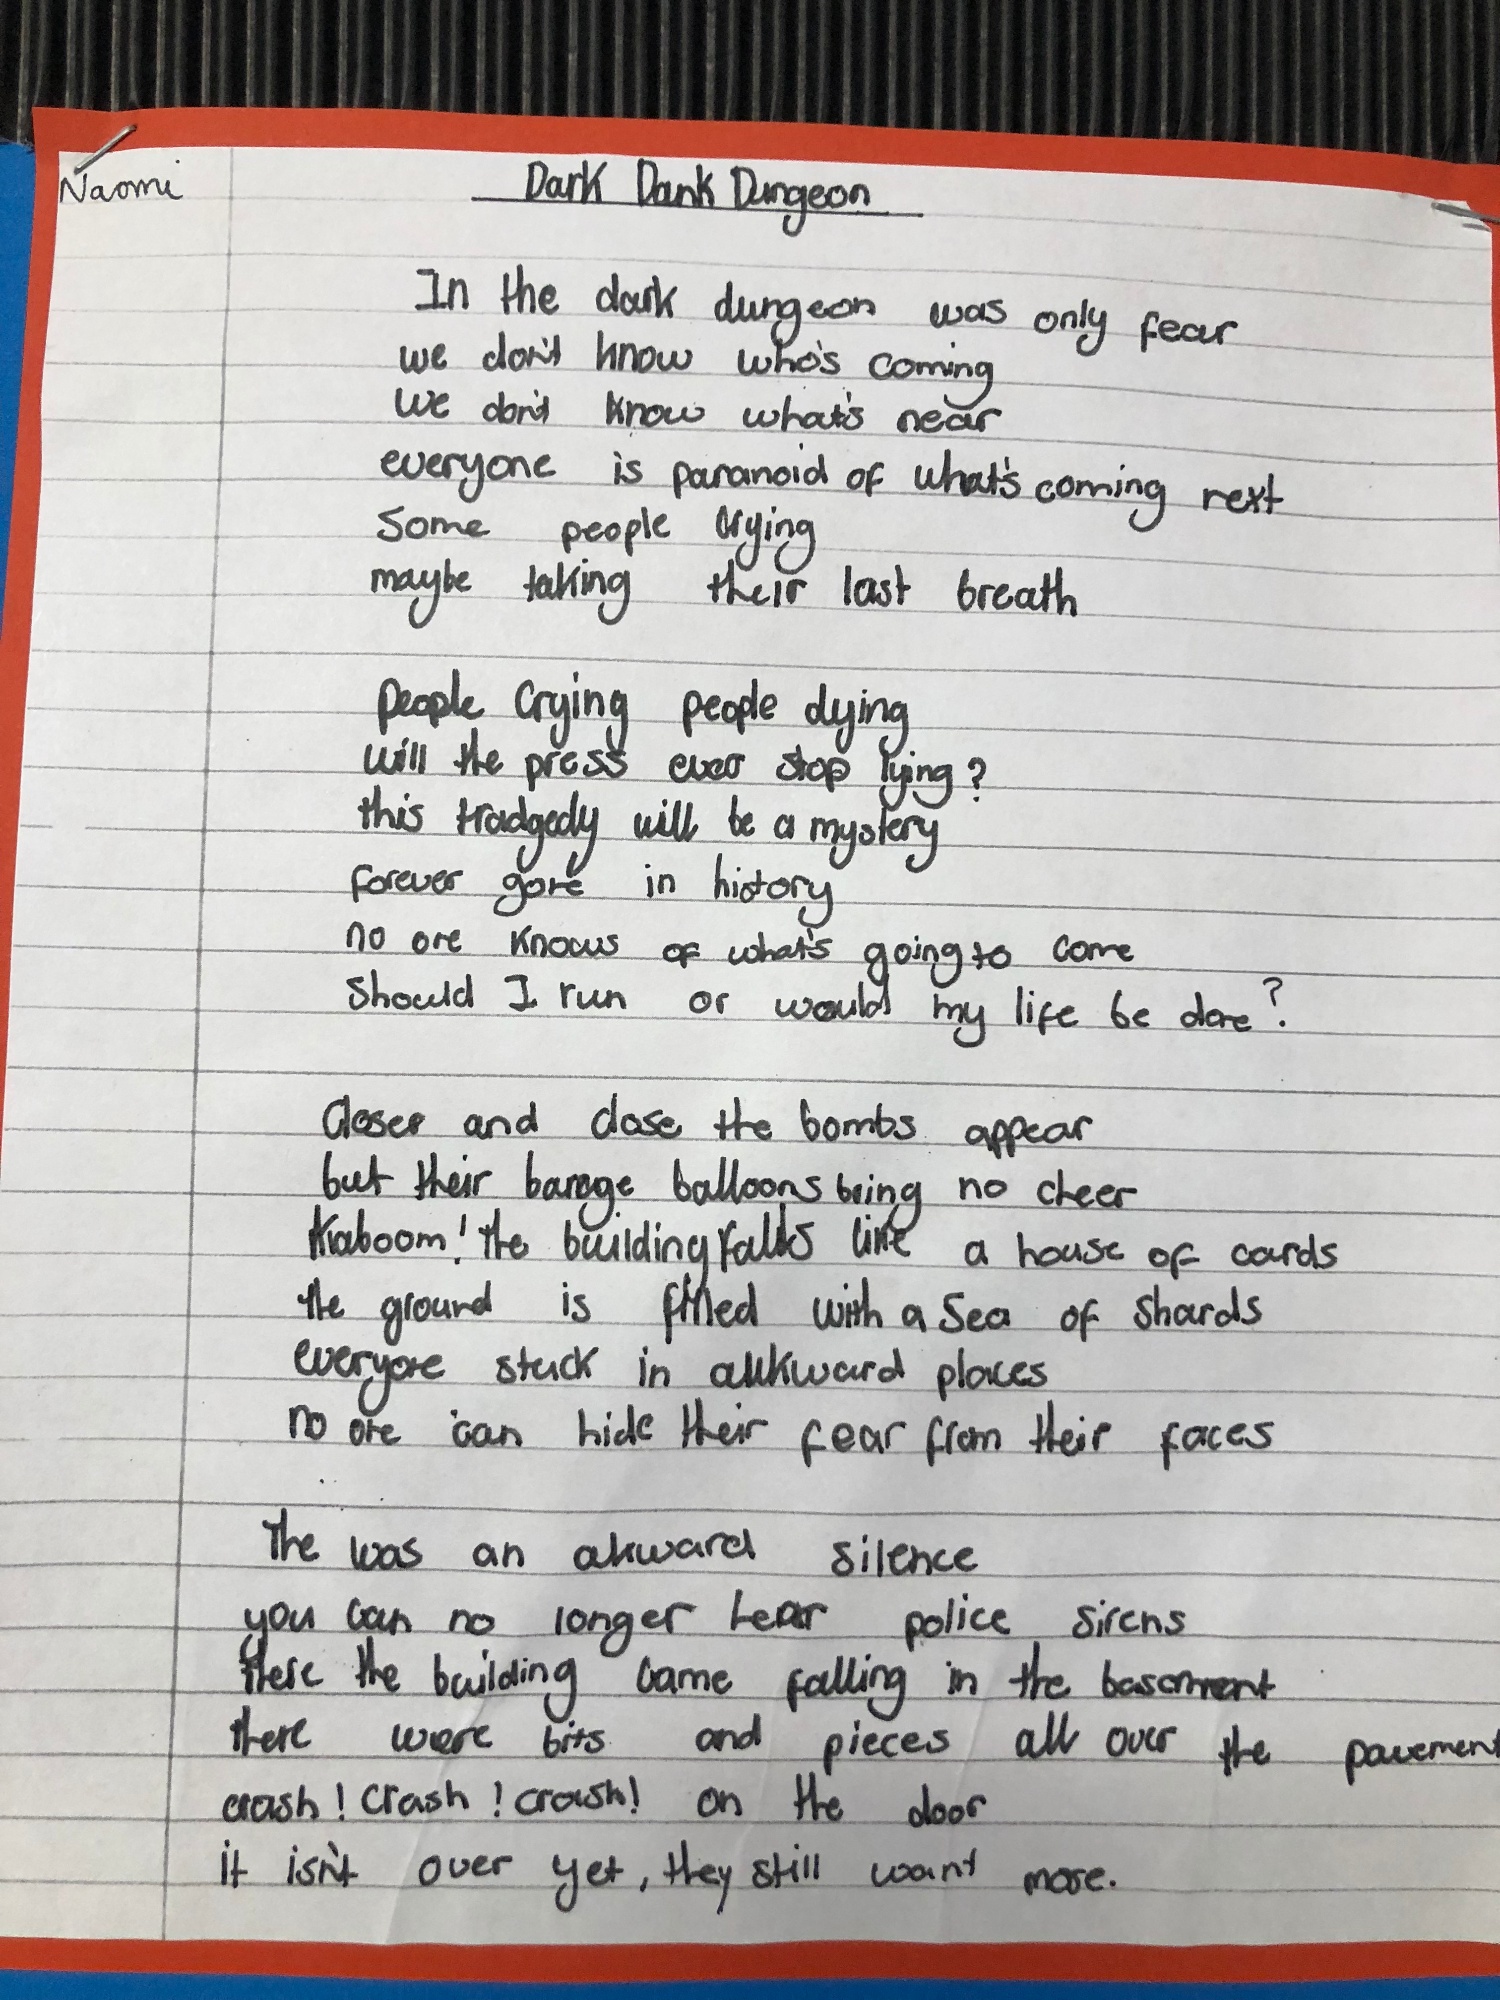 Naomi
Dark Dank Dungeon
In the dark dungeon was only fear
we don't know who's coming
we don't know what's near
everyone is paranoid of what's coming next
Some people crying
maybe taking their last breath
People Crying people dying
will the press ever stop lying?
this tradgedy will be a mystery
forever gone in history
no one knows of what's going to come
Should I run or would my life be done?
Closer and close the bombs appear
but their barage balloons bring no cheer
Kaboom! the building falls like a house of cards
the ground is filled with a sea of shards
everyone stuck in awkward places
no one can hide their fear from their faces
The was an akward silence
you can no longer hear police sirens
there the building came falling in the basement
there were bits and pieces all over the pavement
crash! crash! crash! on the door
it isn't over yet, they still want more.